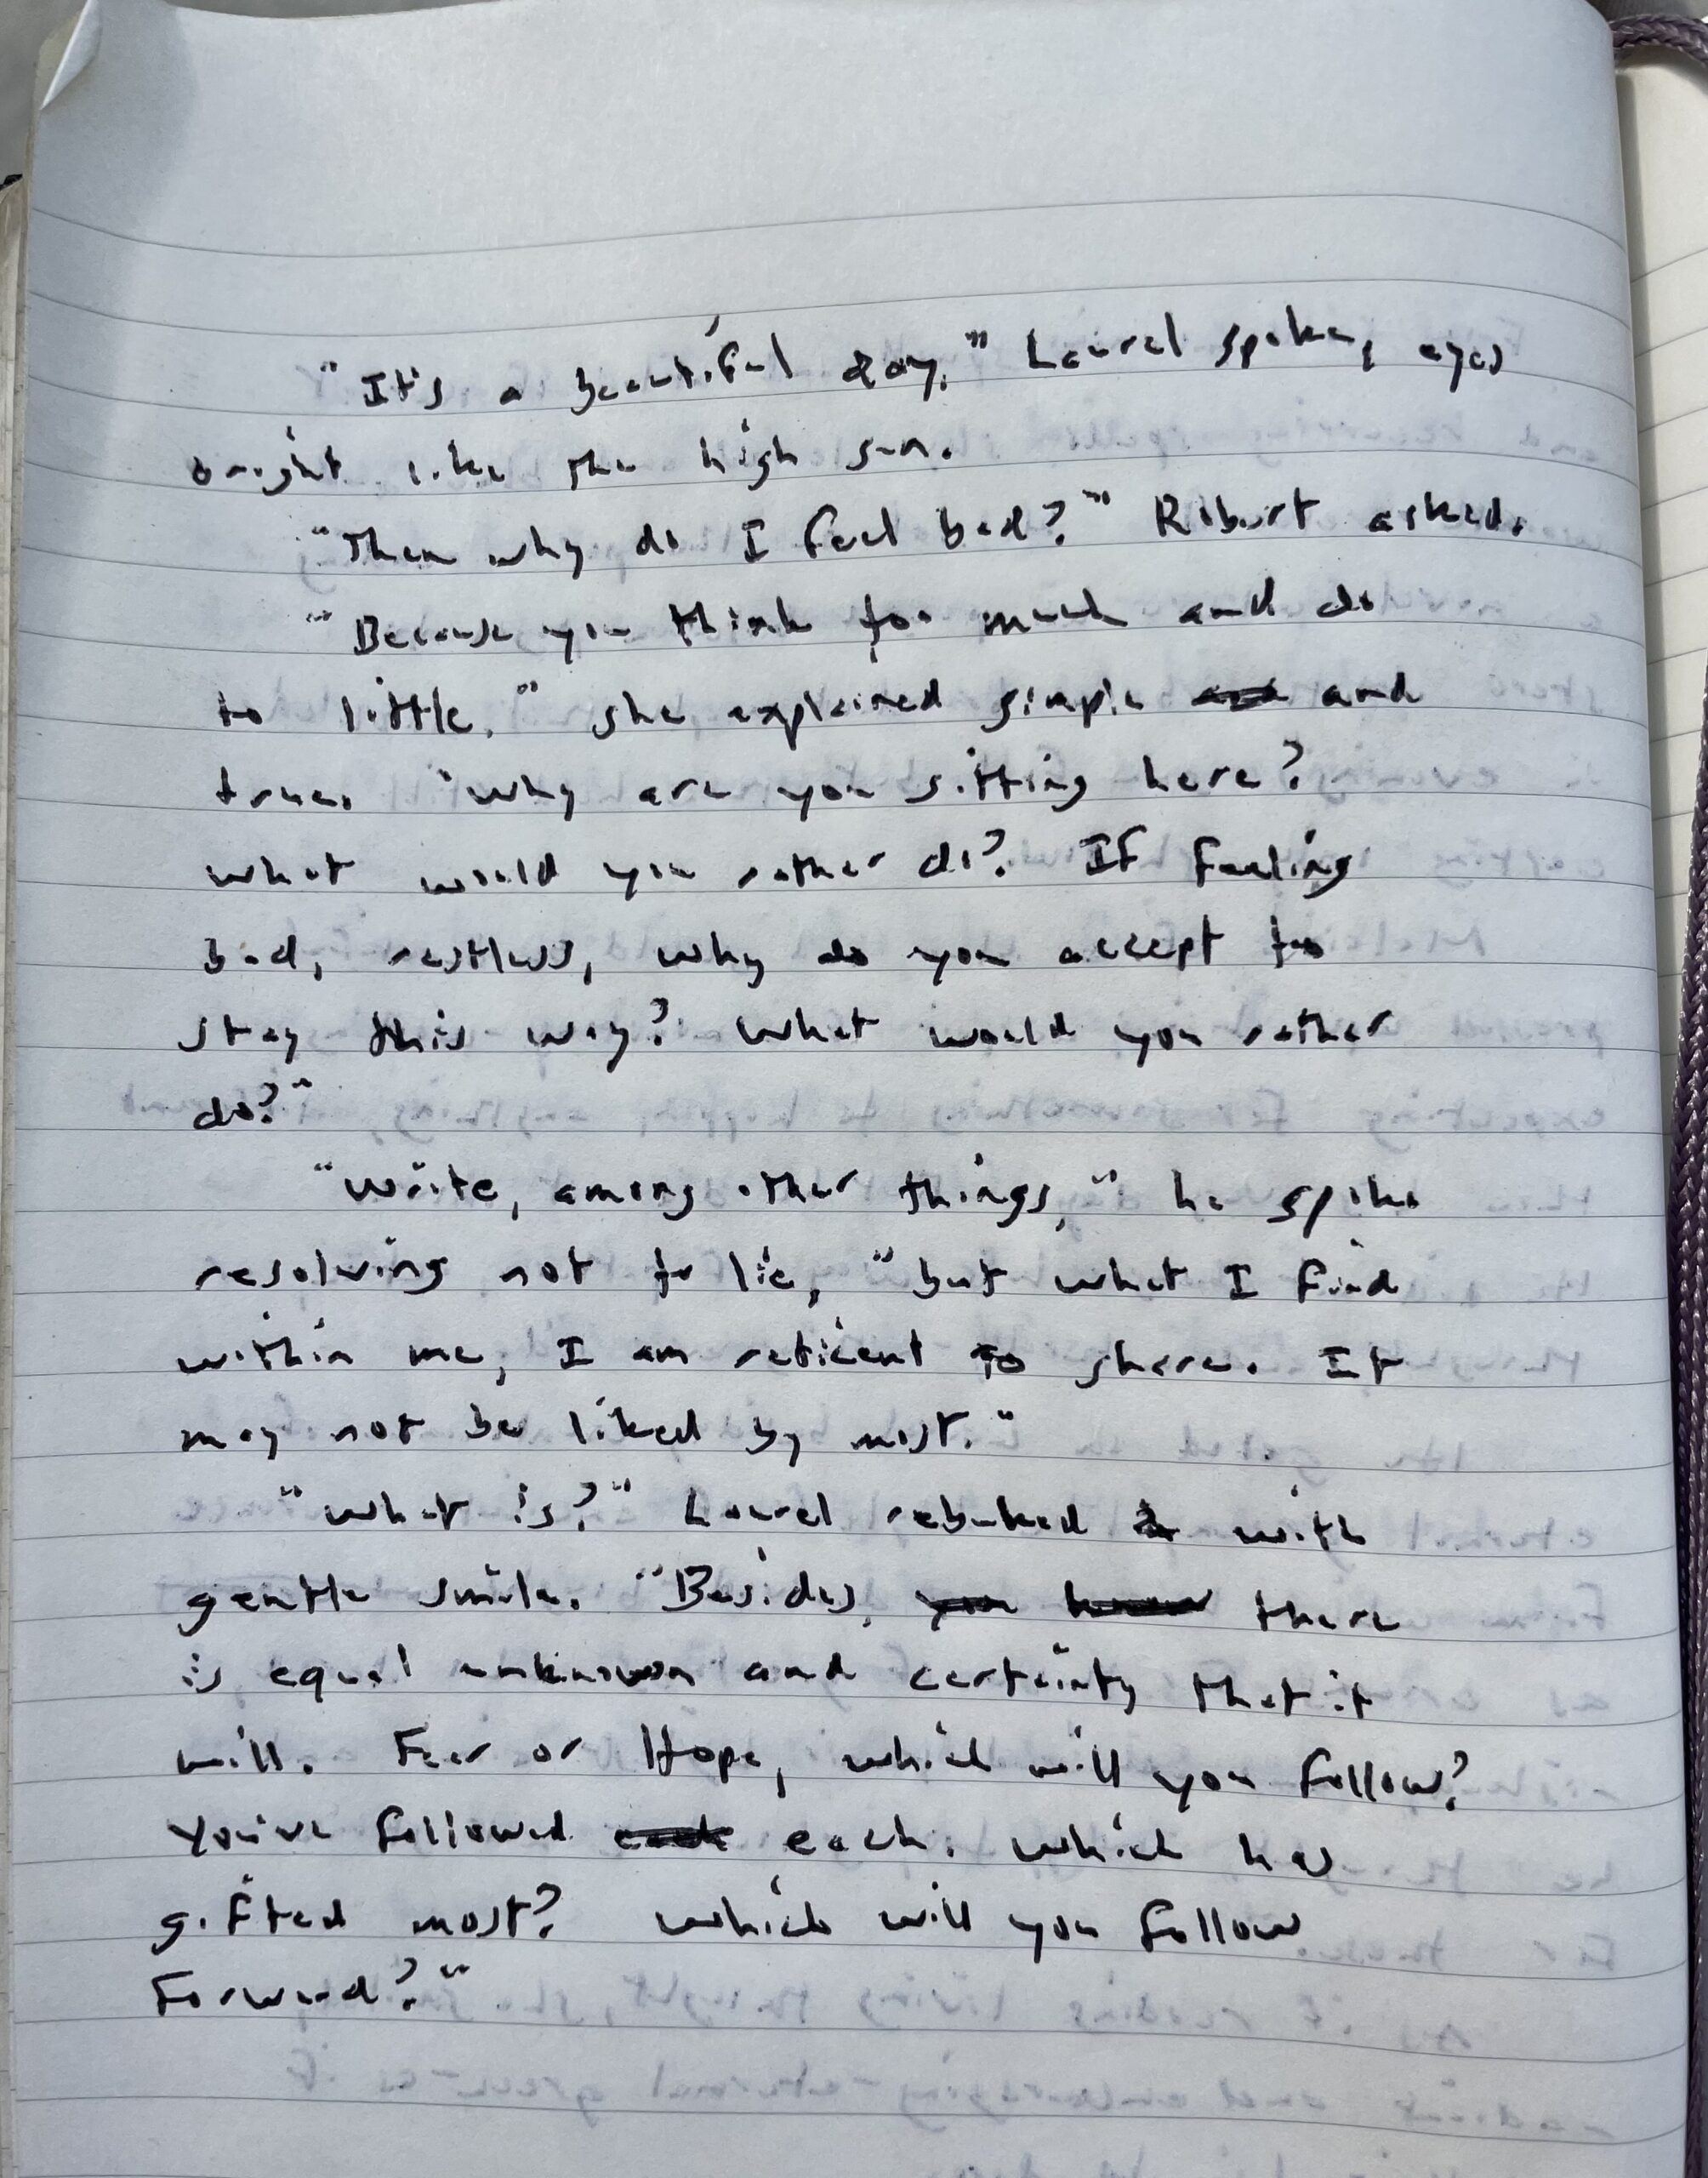 "It's a beautiful day," Laurel spoke, eyes
bright like the high sun.
"Then why do I feel bad?" Robert asked.
"Because you think too much and do
to little," she explained simple and
true. "Why are you sitting here?
What would you rather do? If feeling
bad, restless, why do you accept to
stay this way? What would you rather
do?"
"Write, among other things," he spoke
resolving not to lie, "but what I find
within me, I am reticent to share. It
may not be liked by most."
"What is?" Laurel rebuked with
gentle smile. "Besides, there
is equal unknown and certainty that it
will. Fear or Hope, which will you follow?
You've followed each. Which has
gifted most? Which will you follow
forward?"